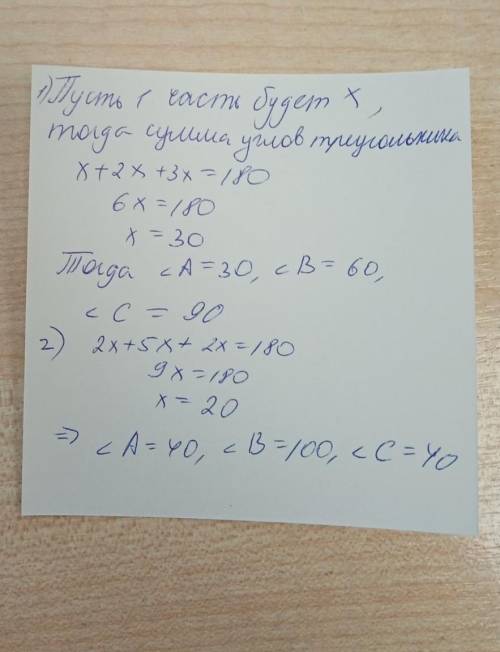 1) Пусть 1 часть будет x,
тогда сумма углов треугольника
x+2x+3x=180
6x=180
x=30
Тогда ∠A=30, ∠B=60,
∠C=90
2) 2x+5x+2x=180
9x=180
x=20
=> ∠A=40, ∠B=100, ∠C=40